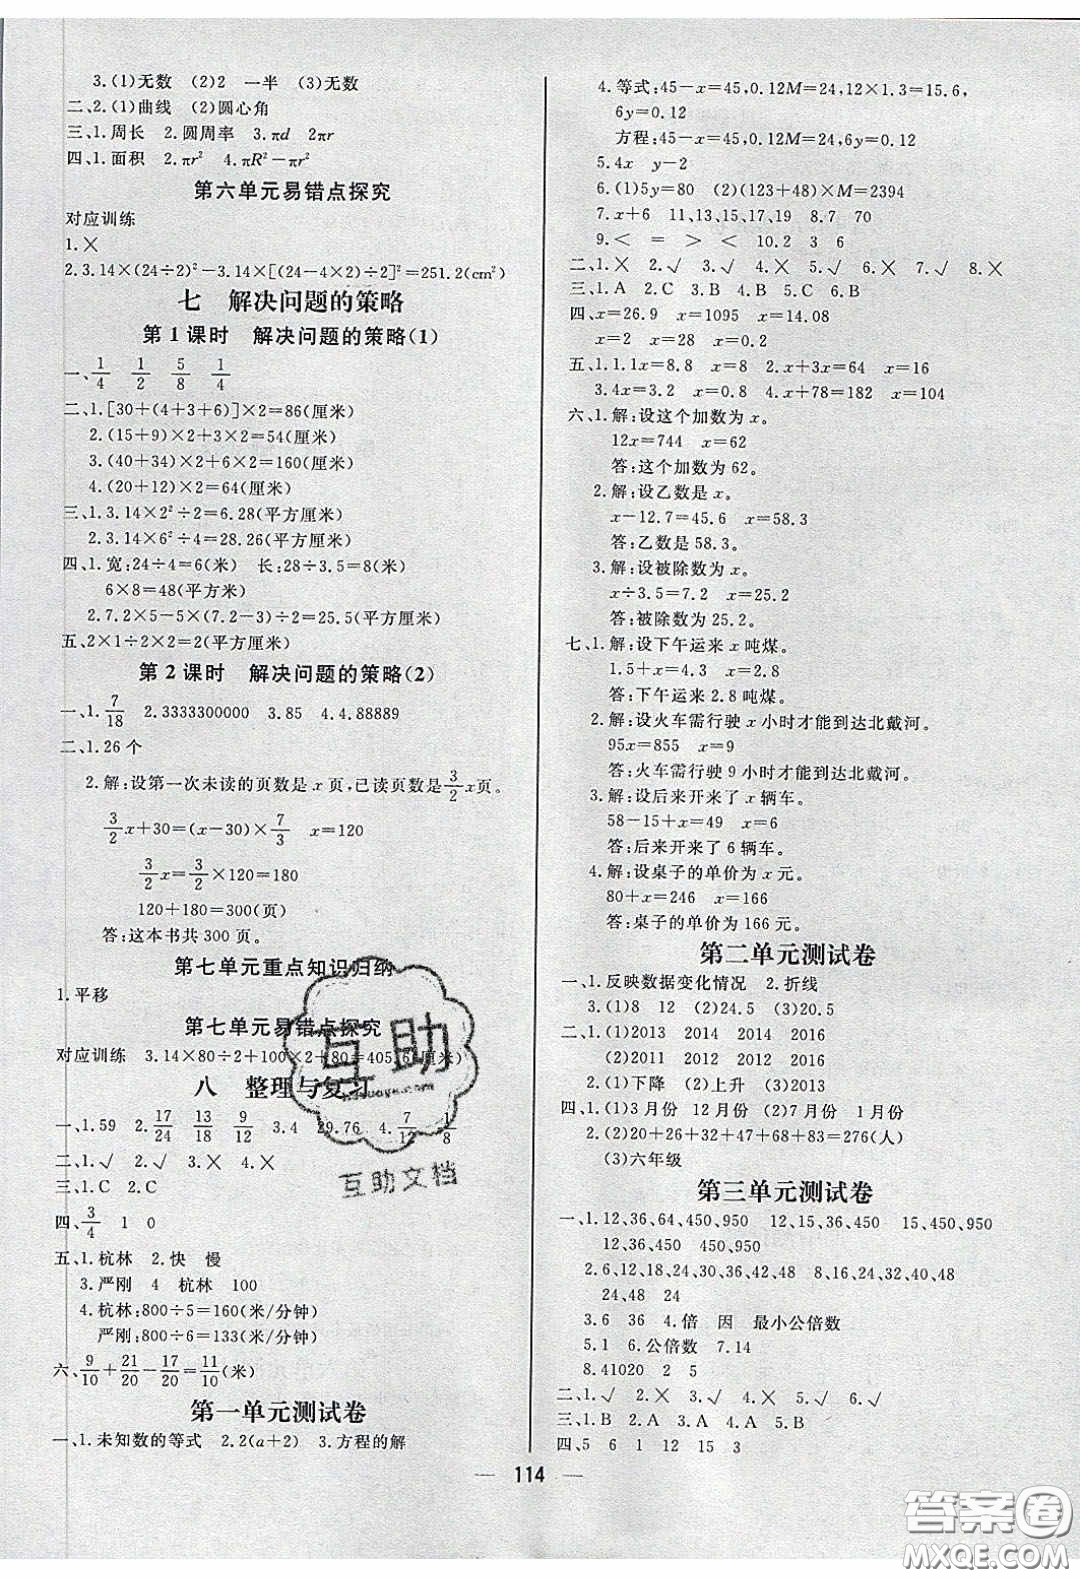 3.(1)无数　(2)2　一半　(3)无数
二、2.(1)曲线　(2)圆心角
三、1.周长　2.圆周率　3.πd　2πr
四、1.面积　2.πr²　4.πR²－πr²
第六单元易错点探究
对应训练
1.×
2.3.14×(24÷2)²－3.14×[(24－4×2)÷2]²＝251.2(cm²)
七　解决问题的策略
第1课时　解决问题的策略(1)
一、1/4　1/2　5/8　1/4
二、1.[30＋(4＋3＋6)]×2＝86(厘米)
2.(15＋9)×2＋3×2＝54(厘米)
3.(40＋34)×2＋6×2＝160(厘米)
4.(20＋12)×2＝64(厘米)
三、1.3.14×2²÷2＝6.28(平方厘米)
2.3.14×6²÷4＝28.26(平方厘米)
四、1.宽:24÷4＝6(米)　长:28÷3.5＝8(米)
6×8＝48(平方米)
2.7.2×5－5×(7.2－3)÷2＝25.5(平方米)
五、2×1÷2×2＝2(平方厘米)
第2课时　解决问题的策略(2)
一、1.7/18　2.3333300000　3.85　4.4.88889
二、1.26个
2.解:设第一次未读的页数是x页,已读页数是3/2x页。
3/2x＋30＝(x－30)×7/3　x＝120
3/2x＝3/2×120＝180
120＋180＝300(页)
答:这本书共300页。
第七单元重点知识归纳
1.平移
第七单元易错点探究
对应训练　3.14×80÷2＋100×2＋80＝405.6(厘米)
八　整理与复习
一、1.59　2.17/24　13/18　9/12　3.4　29.76　4.7/12　1/8
二、1.√　2.×　3.√　4.×
三、1.C　2.C
四、3/4　1　0
五、1.杭林　2.快　慢
3.严刚　4　杭林　100
4.杭林:800÷5＝160(米/分钟)
严刚:800÷6＝133(米/分钟)
六、9/10＋21/20－17/20＝11/10(米)
第一单元测试卷
一、1.未知数的等式　2.2(a＋2)　3.方程的解
4.等式:45－x＝45,0.12M＝24,12×1.3＝15.6,
6y＝0.12
方程:45－x＝45,0.12M＝24,6y＝0.12
5.4x　y－2
6.(1)5y＝80　(2)(123＋48)×M＝2394
7.x＋6　11,13,15,17,19　8.7　70
9.＜　＝　＞　＜　10.2　3　6
二、1.×　2.√　3.√　4.×　5.√　6.√　7.√　8.×
三、1.A　2.C　3.B　4.B　5.C　6.B
四、x＝26.9　x＝1095　x＝14.08
x＝2　x＝28　x＝0.4
五、1.1.1x＝8.8　x＝8　2.x＋3x＝64　x＝16
3.4x＝3.2　x＝0.8　4.x＋78＝182　x＝104
六、1.解:设这个加数为x。
12x＝744　x＝62
答:这个加数为62。
2.解:设乙数是x。
x－12.7＝45.6　x＝58.3
答:乙数是58.3。
3.解:设被除数为x。
x÷3.5＝7.2　x＝25.2
答:被除数为25.2。
七、1.解:设下午运来x吨煤。
1.5＋x＝4.3　x＝2.8
答:下午运来2.8吨煤。
2.解:设火车需行驶x小时才能到达北戴河。
95x＝855　x＝9
答:火车需行驶9小时才能到达北戴河。
3.解:设后来开来了x辆车。
58－15＋x＝49　x＝6
答:后来开来了6辆车。
4.解:设桌子的单价为x元。
80＋x＝246　x＝166
答:桌子的单价为166元。
第二单元测试卷
一、1.反映数据变化情况　2.折线
3.(1)8　12　(2)24.5　(3)20.5
二、1.(1)2013　2014　2014　2016
(2)2011　2012　2012　2016
2.(1)下降　(2)上升　(3)2013
四、1.(1)3月份　12月份　(2)7月份　1月份
2.(2)20＋26＋32＋46＋69＋83＝276(人)
(3)六年级
第三单元测试卷
一、1.12,36,64,450,950　12,15,36,450　15,450,950
12,36,450　450,950
2.6,12,18,24,30,36,42,48　8,16,24,32,40,48
24,48　24
3.6　36　4.倍　因　最小公倍数
5.1　6.公倍数　7.14
8.41020　2　5
二、1.√　2.×　3.√　4.×　5.√　6.√
三、1.B　2.A　3.A　4.B　5.B
四、5　6　1　12　15　3
114
互助
互助文档
答案圈
MXQE.COM